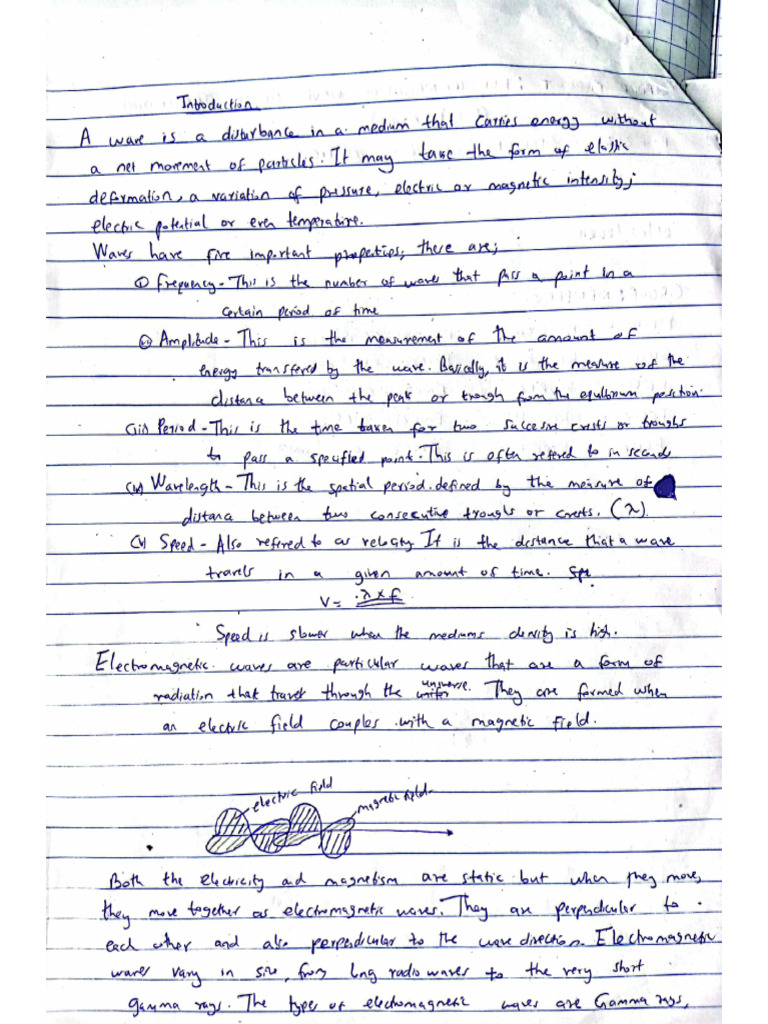 Introduction
A wave is a disturbance in a medium that carries energy without
a net movement of particles. It may take the form of elastic
deformation, a variation of pressure, electric or magnetic intensity,
electric potential or even temperature.
Waves have five important properties; these are;
(i) Frequency - This is the number of waves that pass a point in a
certain period of time
(ii) Amplitude - This is the measurement of the amount of
energy transferred by the wave. Basically, it is the measure of the
distance between the peak or trough from the equilibrium position.
(iii) Period - This is the time taken for two succesive crests or troughs
to pass a specified point. This is often refered to in seconds
(iv) Wavelength - This is the spatial period defined by the measure of
distance between two consecutive troughs or crests. (λ)
(v) Speed - Also refered to as velocity It is the distance that a wave
travels in a given amount of time. Spe
V = λ x f
Speed is slower when the mediums density is high.
Electromagnetic waves are particular waves that are a form of
radiation that travel through the universe. They are formed when
an electric field couples with a magnetic field.
electric field
magnetic field
Both the electricity and magnetism are static but when they move,
they move together as electromagnetic waves. They are perpendicular to
each other and also perpendicular to the wave direction. Electromagnetic
waves vary in size, from long radio waves to the very short
gamma rays. The types of electromagnetic waves are Gamma rays,